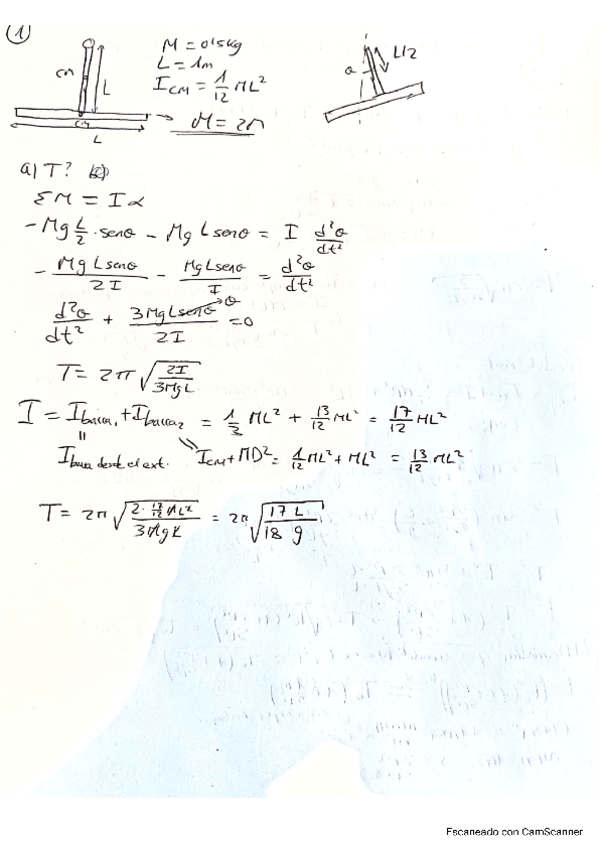 1
M = 0'5kg
L = 1m
CM
L
I_CM = 1/12 ML²
M = 2M
CM
L
θ
L/2
a) T?
ΣM = Iα
-Mg L/2 · senθ - MgLsenθ = I d²θ/dt²
- MgLsenθ/2I - MgLsenθ/I = d²θ/dt²
d²θ/dt² + 3MgLsenθ/2I = 0
θ
T = 2π √(2I/3MgL)
I = I barra₁ + I barra₂ = 1/3 ML² + 13/12 ML² = 17/12 ML²
I barra desde el ext. I_CM + MD² = 1/12 ML² + ML² = 13/12 ML²
T = 2π √(2 · 17/12 ML²/3MgL) = 2π √(17 L/18 g)
Escaneado con CamScanner